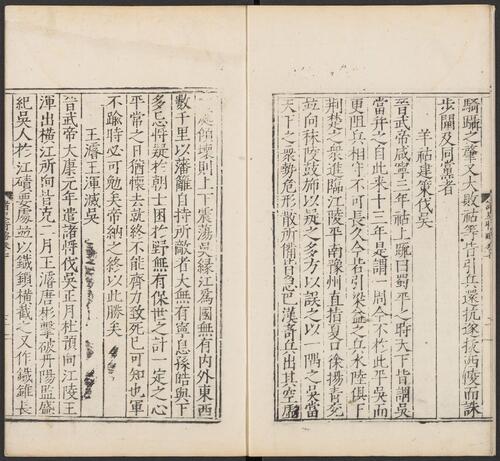 步闡及同黨者
羊祜建策伐吳
晉武帝咸寧三年祜上疏曰蜀平之時天下皆謂吳
當并之自此來十三年是謂一周今不於此平吳而
更阻兵相守不可長久今若引梁益之兵水陸俱下
荆楚之衆進臨江陵平南豫州直指夏口徐揚青兖
並向秣陵鼓斾以疑之多方以誤之以一隅之吳當
天下之衆勢危形散所備皆急巴漢奇兵出其空虛
傾壞則上下震蕩吳緣江爲國無有内外東西
數千里以藩籬自持所敵者大無有寧息孫皓與下
多忌將疑於朝士困於野無有保世之計一定之心
平常之日猶懷去就終不能齊力致死已可知也軍
不踰時必可勉矣帝納之終以此勝矣
王濬王渾滅吳
晉武帝大康元年遣諸將伐吳正月杜預向江陵王
渾出橫江所向皆克二月王濬唐彬擊破丹陽監盛
紀吳人於江磧要處並以鐵鎖橫截之又作鐵錐長